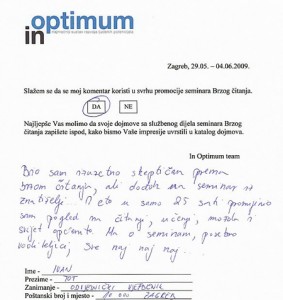 optimum
in
Zagreb, 29.05. – 04.06.2009.
Slažem se da se moj komentar koristi u svrhu promocije seminara Brzog čitanja.
DA NE
Najljepše Vas molimo da svoje dojmove sa službenog dijela seminara Brzog
čitanja zapišete ispod, kako bismo Vaše impresije uvrstili u katalog dojmova.
In Optimum team
Bio sam izuzetno skeptičan prema
brzom čitanju, ali dođoh na seminar iz
znatiželje. I eto u samo 25 sati promijenio
sam pogled na čitanje, učenje, mozak i
svijet općenito. Ma o seminaru, posebno
voditeljici, sve naj naj naj.
Ime – IVAN
Prezime – TOT
Zanimanje – ODVJETNIČKI VJEŽBENIK
Poštanski broj i mjesto – 10 000 ZAGREB